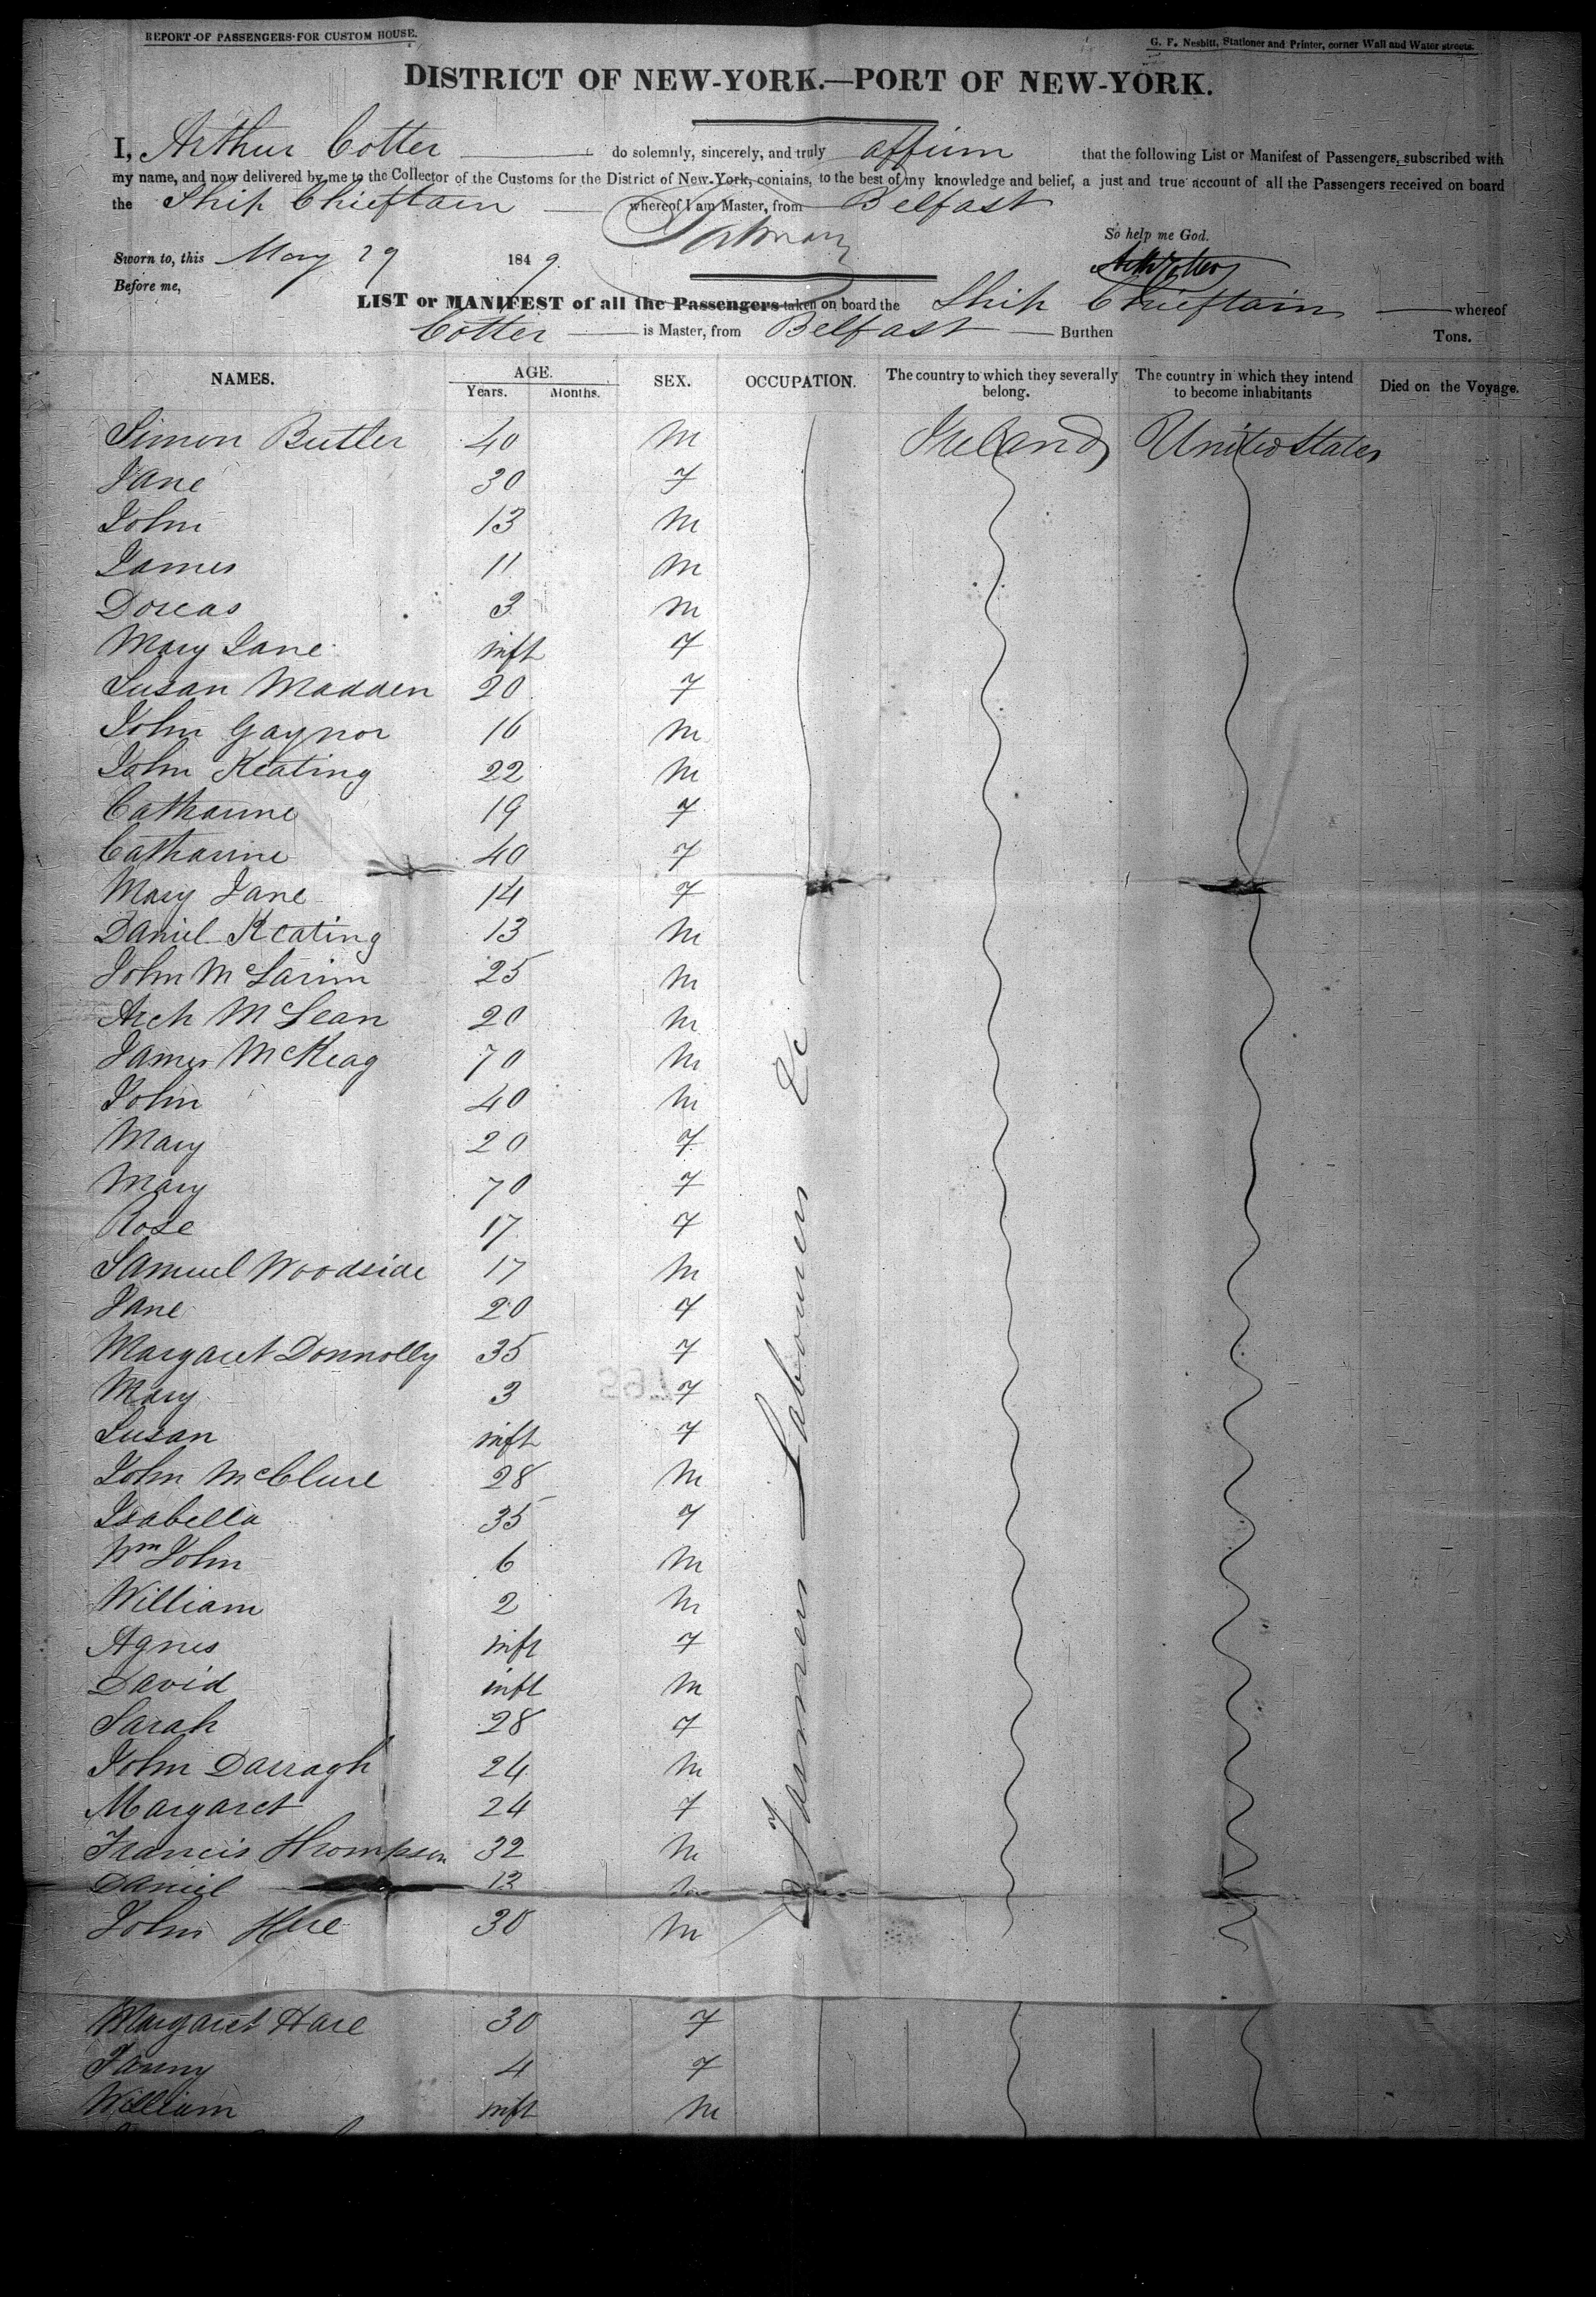 REPORT OF PASSENGERS FOR CUSTOM HOUSE.
G. F. Nesbitt, Stationer and Printer, corner Wall and Water streets.
DISTRICT OF NEW-YORK.—PORT OF NEW-YORK.
I, Arthur Cotter do solemnly, sincerely, and truly affirm that the following List or Manifest of Passengers, subscribed with
my name, and now delivered by me to the Collector of the Customs for the District of New-York, contains, to the best of my knowledge and belief, a just and true account of all the Passengers received on board
the Ship Chieftain whereof I am Master, from Belfast
So help me God.
Sworn to, this May 29 1849
Before me,
LIST or MANIFEST of all the Passengers taken on board the Ship Chieftain whereof
Cotter is Master, from Belfast Burthen Tons.
NAMES. AGE. Years. Months. SEX. OCCUPATION. The country to which they severally belong. The country in which they intend to become inhabitants Died on the Voyage.
Simon Butler 40 M Ireland United States
Jane 30 F
John 13 M
James 11 M
Dorcas 3 M
Mary Jane inft F
Susan Madden 20 F
John Gaynor 16 M
John Keating 22 M
Catharine 19 F
Catharine 40 F
Mary Jane 14 F
Daniel Keating 13 M
John 25 M
Arch McLean 20 M
James McKeag 70 M
John 40 M
Mary 20 F
Mary 70 F
Rose 17 F
Samuel Woodside 17 M
Jane 20 F
Margaret Donnolly 35 F
Mary 3 F
Susan inft F
John McClure 28 M
Isabella 35 F
Wm John 6 M
William 2 M
Agnes inft F
David inft M
Sarah 28 F
John Darragh 24 M
Margaret 24 F
Francis Thompson 32 M
Daniel 13 M
John Hare 30 M
Farmers Labourers &c
Margaret Hare 30 F
Fanny 4 F
William inft M